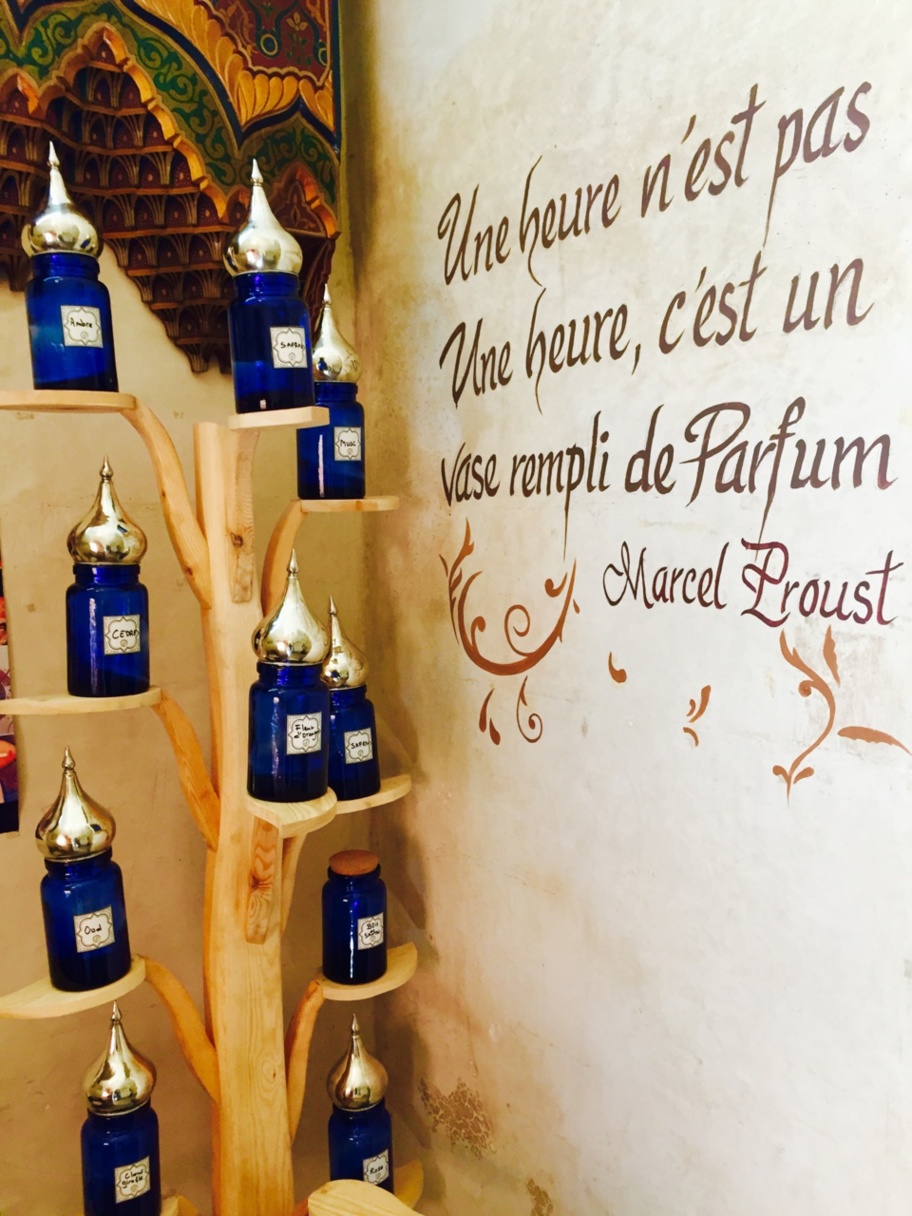 Une heure n'est pas
Une heure, c'est un
vase rempli de Parfum
Marcel Proust
Ambre
SAFRAN
Musc
CEDRE
Fleur
d'Oranger
SAFRAN
Oud
Rose